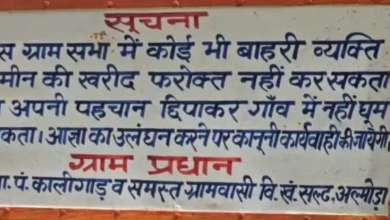 सूचना
स ग्राम सभा में कोई भी बाहरी व्यक्ति
मीन की खरीद फरोक्त नहीं कर सकता
अपनी पहचान छिपाकर गाँव में नहीं घूम
कता। आज्ञा का उलंघन करने पर कानूनी कार्यवाही की जायेगी
ग्राम प्रधान
ा. पं. कालीगाड़ व समस्त ग्रामवासी वि. खं. सल्ट, अल्मोड़ा